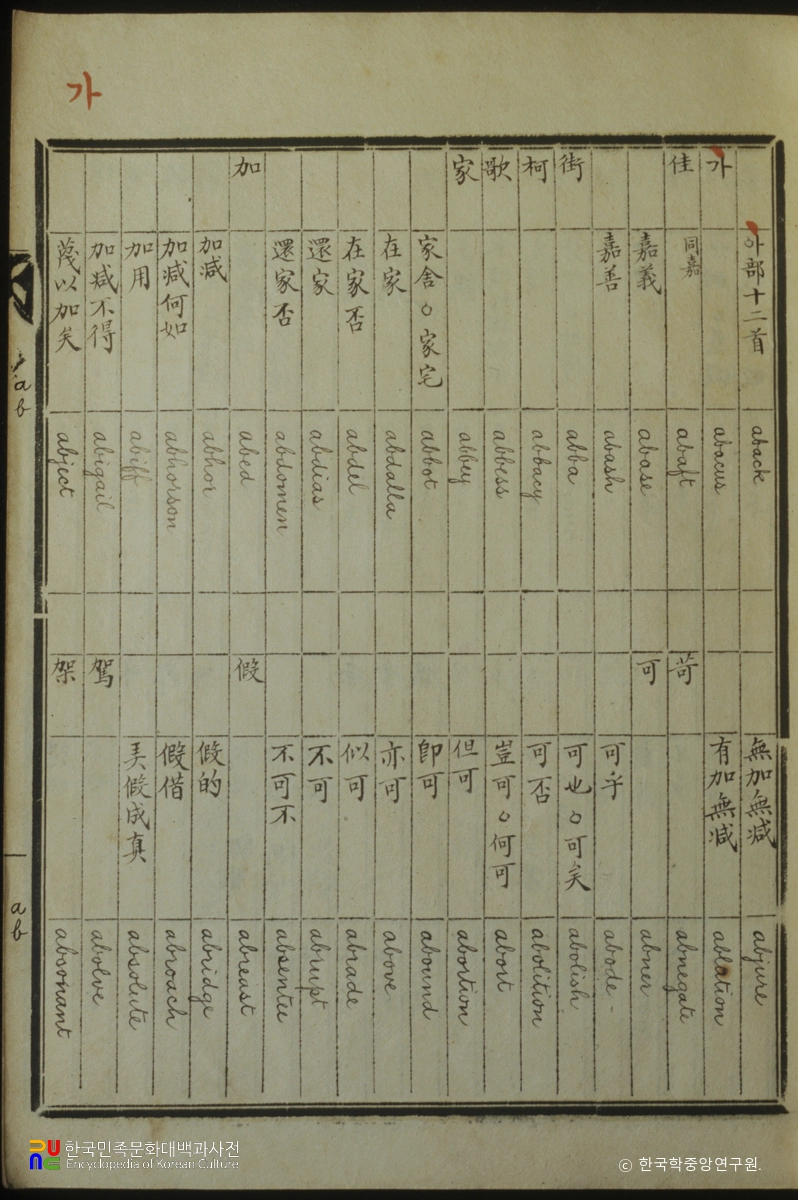 가
아部十二首 aback
가 abacus
佳 同嘉 abaft
嘉義 abase
嘉善 abash
街 abba
柯 abbacy
歌 abbess
家 abbey
家舍○家宅 abbot
在家 abdalla
在家否 abdel
還家 abdias
還家否 abdomen
加 abed
加減 abhor
加減何如 abhorson
加用 abiff
加減不得 abigail
蔑以加矣 abject
無加無減 abjure
有加無減 ablation
苛 abnegate
可 abner
可乎 abode-
可也○可矣 abolish
可否 abolition
豈可○何可 abort
但可 abortion
卽可 abound
亦可 above
似可 abrade
不可 abrupt
不可不 absentee
假 abreast
假的 abridge
假借 abroach
弄假成真 absolute
駕 abolve
架 absonant
ab
ab
한국민족문화대백과사전
Encyclopedia of Korean Culture
© 한국학중앙연구원.